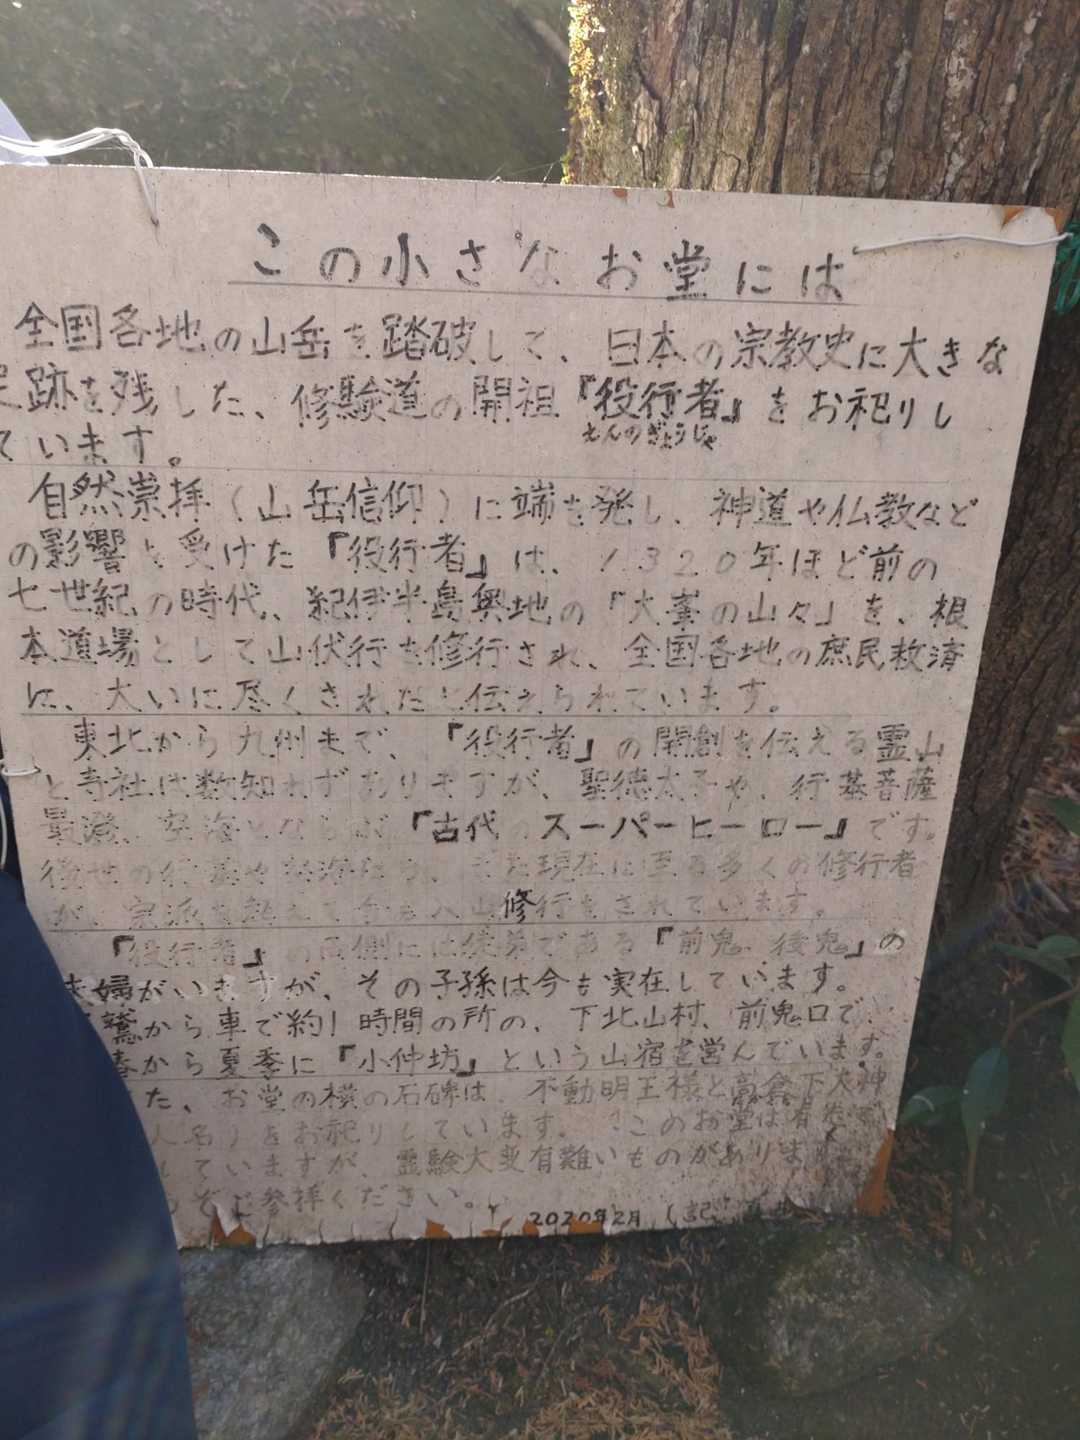 この小さなお堂には
全国各地の山岳を踏破して、日本の宗教史に大きな
足跡を残した、修験道の開祖『役行者』をお祀りし
えんのぎょうじゃ
ています。
自然崇拝(山岳信仰)に端を発し、神道や仏教など
の影響を受けた『役行者』は、1320年ほど前の
七世紀の時代、紀伊半島奥地の「大峯の山々」を、根
本道場として山伏行を修行され、全国各地の庶民救済
に、大いに尽くされたと伝えられています。
東北から九州まで、『役行者』の開創を伝える霊山
と寺社は数知れずありますが、聖徳太子や、行基菩薩
最澄、空海とならぶ『古代のスーパーヒーロー』です。
後世の行基や空海はもとより、また現在に至る多くの修行者
が、宗派を越えて今も入山修行をされています。
『役行者』の両側には従弟である『前鬼、後鬼』の
夫婦がいますが、その子孫は今も実在しています。
鷲から車で約1時間の所の、下北山村、前鬼口で、
春から夏季に『小仲坊』という山宿を営んでいます。
た、お堂の横の石碑は、不動明王様と高倉下大神
人名)をお祀りしています。このお堂は有
していますが、霊験大変有難いものがあります
ぞご参拝ください。
2020年2月(記